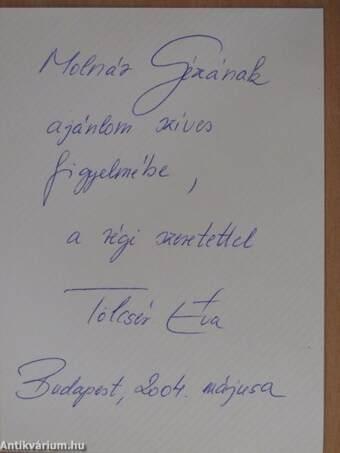 Molnár Gézának
ajánlom szíves
figyelmébe,
a régi szeretettel
Tölcsér Éva
Budapest, 2004. májusa
Antikvárium.hu